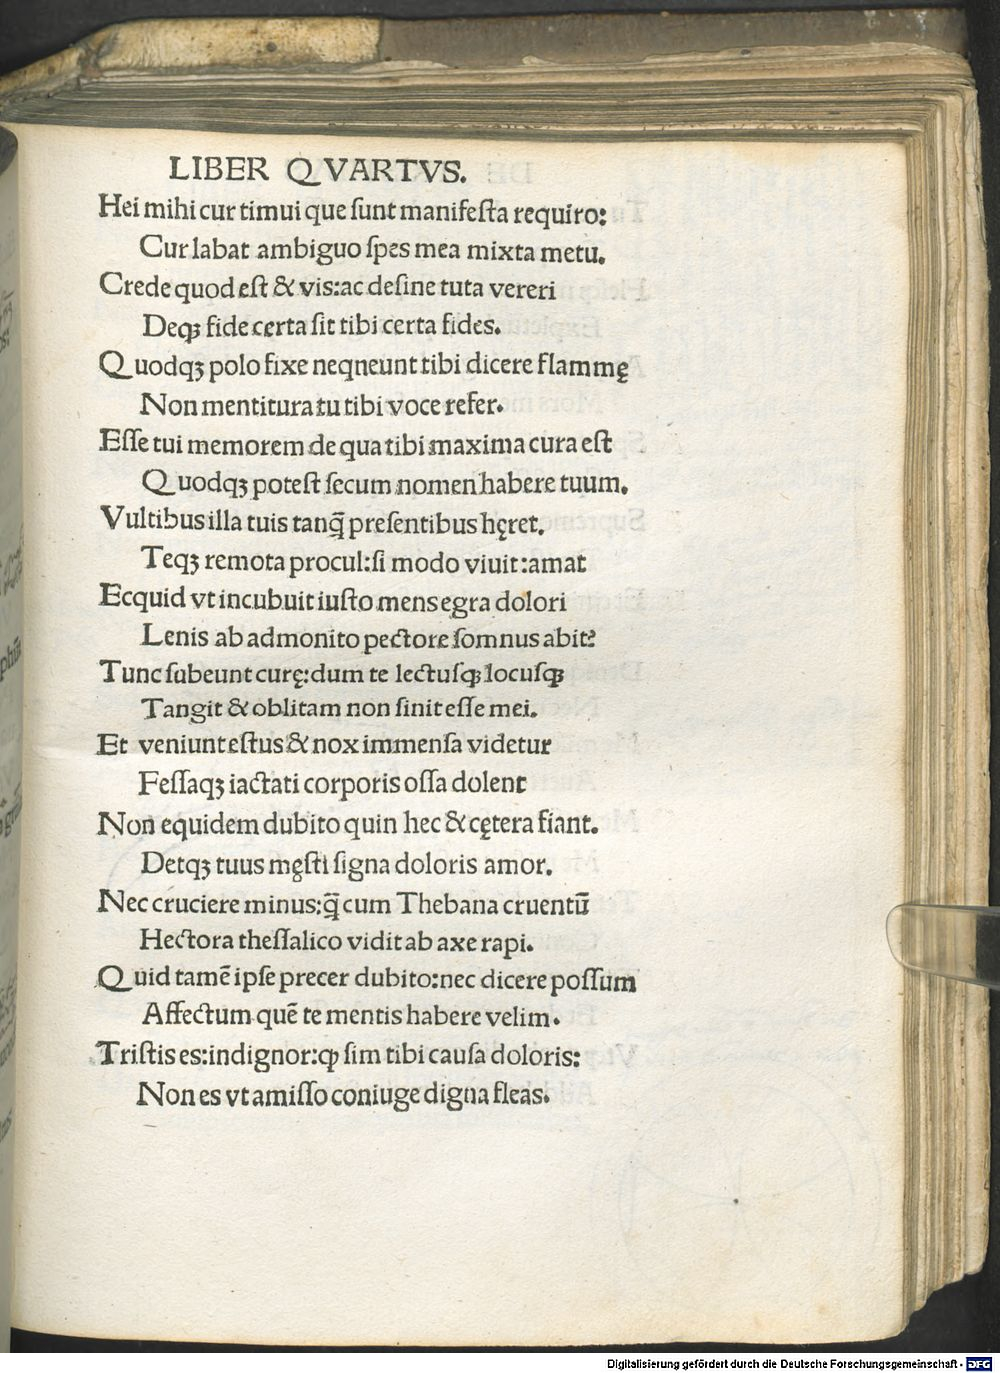 LIBER QVARTVS.
Hei mihi cur timui que ſunt manifeſta requiro:
Cur labat ambiguo ſpes mea mixta metu.
Crede quod eſt & vis:ac deſine tuta vereri
Deqꝫ fide certa ſit tibi certa fides.
Quodqꝫ polo fixe neqneunt tibi dicere flammę
Non mentitura tu tibi voce refer.
Eſſe tui memorem de qua tibi maxima cura eſt
Quodqꝫ poteſt ſecum nomen habere tuum.
Vultibus illa tuis tanq̄ preſentibus hęret.
Teqꝫ remota procul:ſi modo viuit:amat
Ecquid vt incubuit iuſto mens egra dolori
Lenis ab admonito pectore ſomnus abit?
Tunc ſubeunt curę:dum te lectuſqꝫ locuſqꝫ
Tangit & oblitam non ſinit eſſe mei.
Et veniunt eſtus & nox immenſa videtur
Feſſaqꝫ iactati corporis oſſa dolent
Non equidem dubito quin hec & cętera fiant.
Detqꝫ tuus męſti ſigna doloris amor.
Nec cruciere minus:q̄ cum Thebana cruentū
Hectora theſſalico vidit ab axe rapi.
Quid tamē ipſe precer dubito:nec dicere poſſum
Affectum quē te mentis habere velim.
Triſtis es:indignor:ꝙ ſim tibi cauſa doloris:
Non es vt amiſſo coniuge digna fleas.
Digitalisierung gefördert durch die Deutsche Forschungsgemeinschaft - DFG